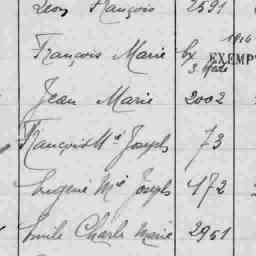 Léon François 2591
François Marie bx 1916
S. Mède EXEMP
Jean Marie 2002
François Mie Joseph 73
Eugène Mie Joseph 472
Emile Charle Marie 2951